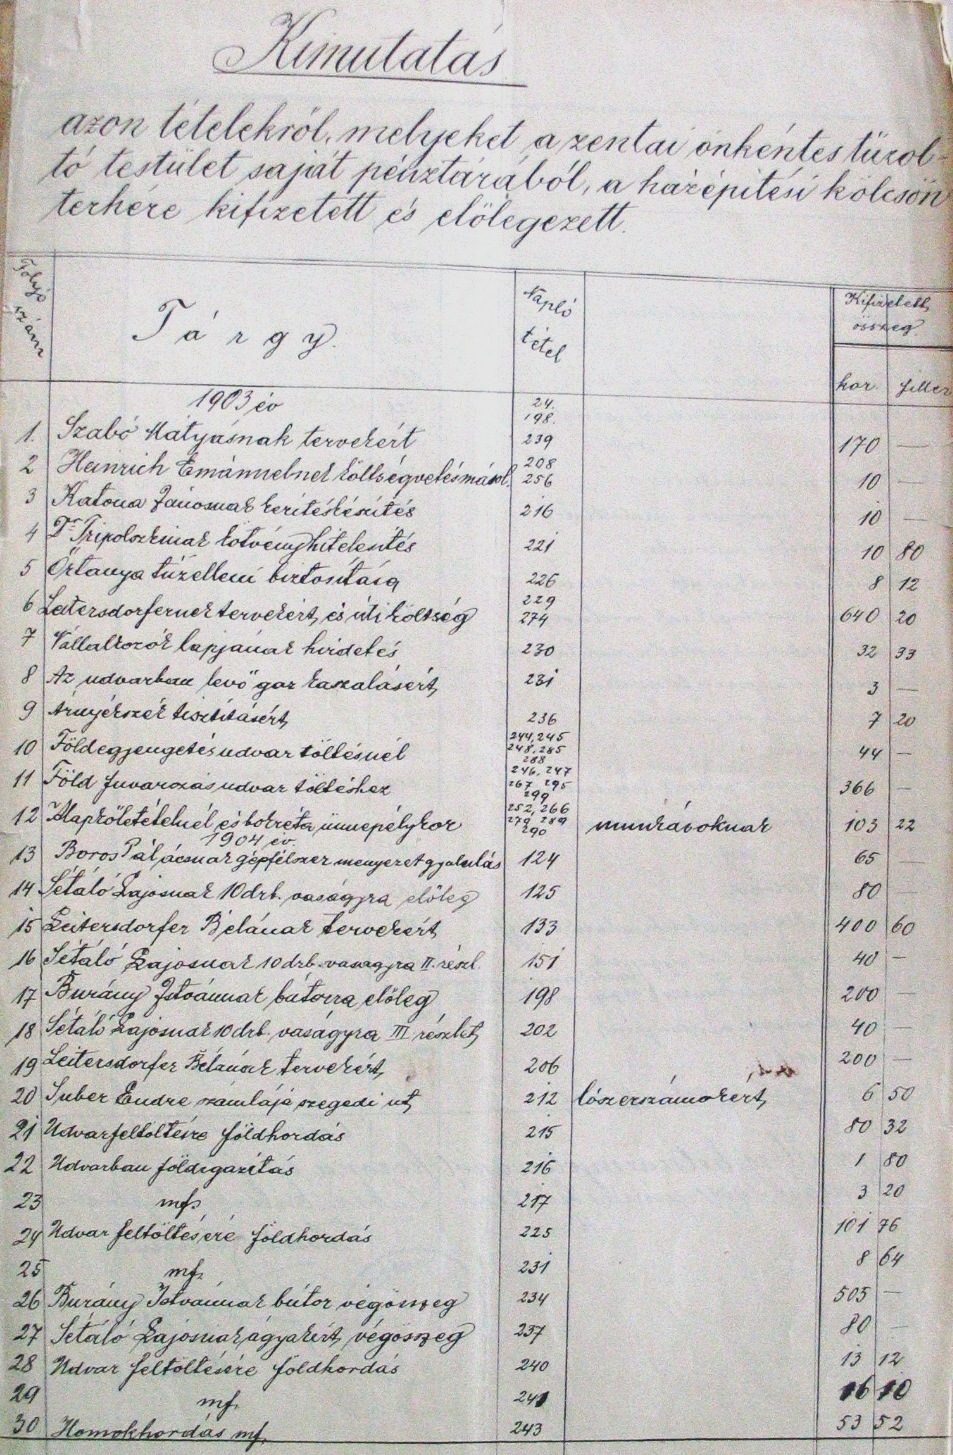 Kimutatás
azon tételekről, melyeket a zentai önkéntes tűzol-
tó testület saját pénztárából, a házépitési kölcsön
terhére kifizetett és előlegezett.
Folyó szám Tárgy. Napló tétel Kifizetett összeg.
kor. fillér
1903 év 24.
198.
1. Szabó Mátyásnak tervekért 239 170 —
208
2 Heinrich Emánuelnek költségvetésmásol. 256 10 —
3 Katona Jánosnak kerítéskészítés 216 10 —
4 Dr. Tripolszkinak kötvényhitelesités 221 10 80
5 Őrtanya tűzelleni biztosítása 226 8 12
229
6 Leitersdorfernek tervekért, és úti költség 274 640 20
7 Vállalkozók lapjának hirdetés 230 32 33
8 Az udvarban levő gaz kaszálásért, 231 3 —
9 Árnyékszék tisztításért, 236 7 20
244, 245
10 Földegyengetés udvar töltésnél 248, 285 44 —
288
246, 247
11 Föld fuvarozás udvar töltéshez 267 295 366 —
299
252, 266
12 Alapkőletételnél és bokréta ünnepélykor 279, 289 munkásoknak 103 22
290
1904 év.
13 Boros Pál ácsnak gépfélszer menyezet gyalulás 124 65 —
14 Sétáló Lajosnak 10 drb. vaságyra előleg 125 80 —
15 Leitersdorfer Bélának tervekért, 133 400 60
16 Sétáló Lajosnak 10 drb. vaságyra II. részl. 151 40 —
17 Burány Istvánnak bútorra előleg 198 200 —
18 Sétáló Lajosnak 10 drb. vaságyra III részlet, 202 40 —
19 Leitersdorfer Bélának tervekért, 206 200 —
20 Suber Endre számlája szegedi út, 212 lószerszámokért, 6 50
21 Udvarfeltöltésre földhordás 215 80 32
22 Udvarban földigazítás 216 1 80
23 mf. 217 3 20
24 Udvar feltöltésére földhordás 225 101 76
25 mf. 231 8 64
26 Burány Istvánnak bútor végösszeg 234 505 —
27 Sétáló Lajosnak ágyakért, végösszeg 237 80 —
28 Udvar feltöltésére földhordás 240 13 12
29 mf. 241 16 10
30 Homokhordás mf. 243 53 52